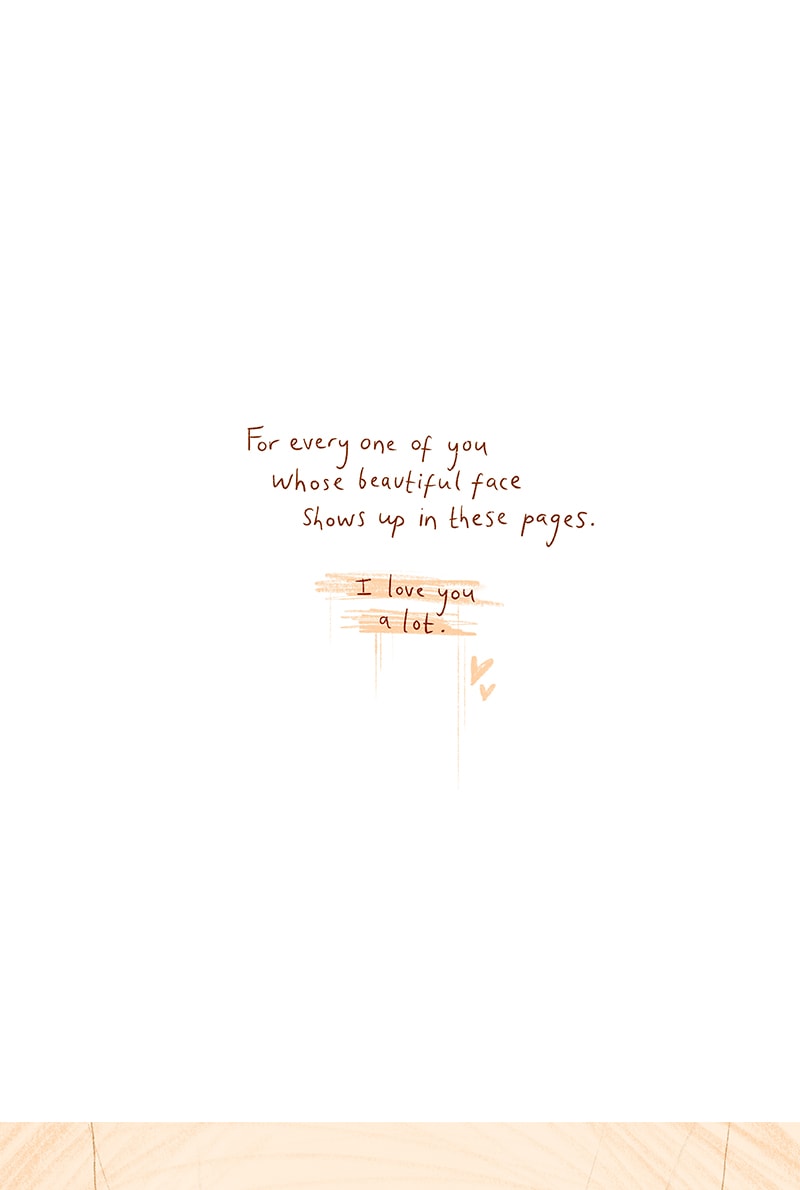 For every one of you
whose beautiful face
shows up in these pages.
I love you
a lot.